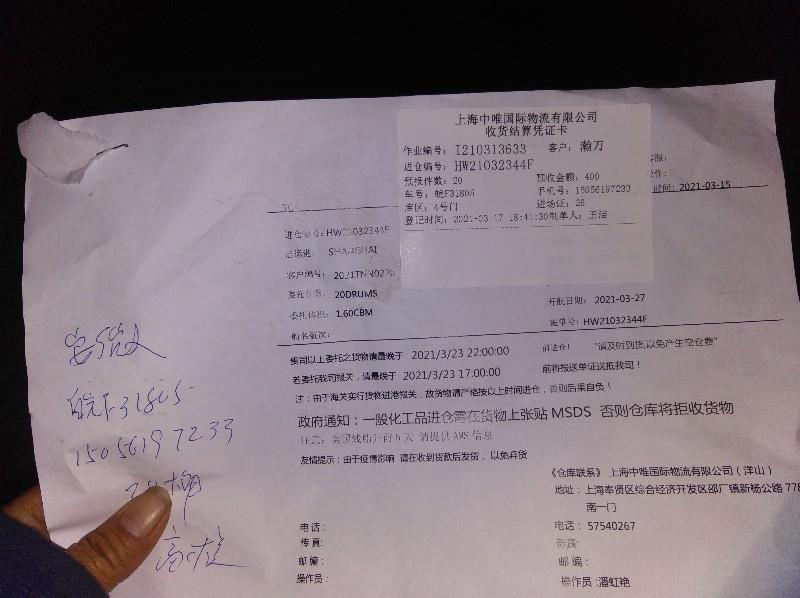 上海中唯国际物流有限公司
收货结算凭证卡
作业编号: I210313633 客户: 瀚万
进仓编号: HW21032344F
预报件数: 20 预收金额: 400
车号: 皖F31805 手机号: 15056197233
库区: 4号门 进场证: 26
登记时间: 2021-03-17 18:41:30制单人: 王洁
时间: 2021-03-15
TO:
进仓编号: HW21032344F
SHANGHAI
客户编号:
委托件数: 20DRUMS
委托体积: 1.60CBM
船名航次:
开航日期: 2021-03-27
运单号: HW21032344F
贵司以上委托之货物请最晚于 2021/3/23 22:00:00 前进仓! "请及时到货,以免产生空仓费"
若委托我司报关, 请最晚于 2021/3/23 17:00:00 前将报送单证送抵我司!
注: 由于海关实行货物进港报关, 故货物请严格按以上时间进仓, 否则后果自负!
政府通知: 一般化工品进仓需在货物上张贴 MSDS 否则仓库将拒收货物
注意: 美国线船开前5天 请提供 AMS 信息
友情提示: 由于疫情影响 请在收到货款后发份, 以免弃货
《仓库联系》 上海中唯国际物流有限公司 (洋山)
地址: 上海奉贤区综合经济开发区邵厂镇新杨公路 778
南一门
电话: 电话: 57540267
传真: 传真:
邮编: 邮编:
操作员: 操作员: 潘虹艳
皖F31805
15056197233